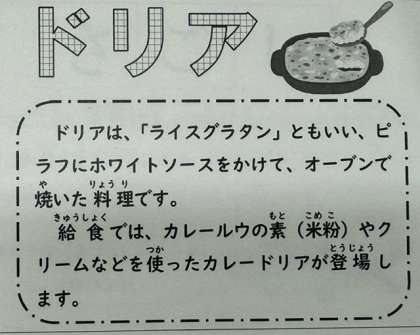 ドリア
ドリアは、「ライスグラタン」ともいい、ピ
ラフにホワイトソースをかけて、オーブンで
焼いた料理です。
給食では、カレールウの素（米粉）やク
リームなどを使ったカレードリアが登場し
ます。